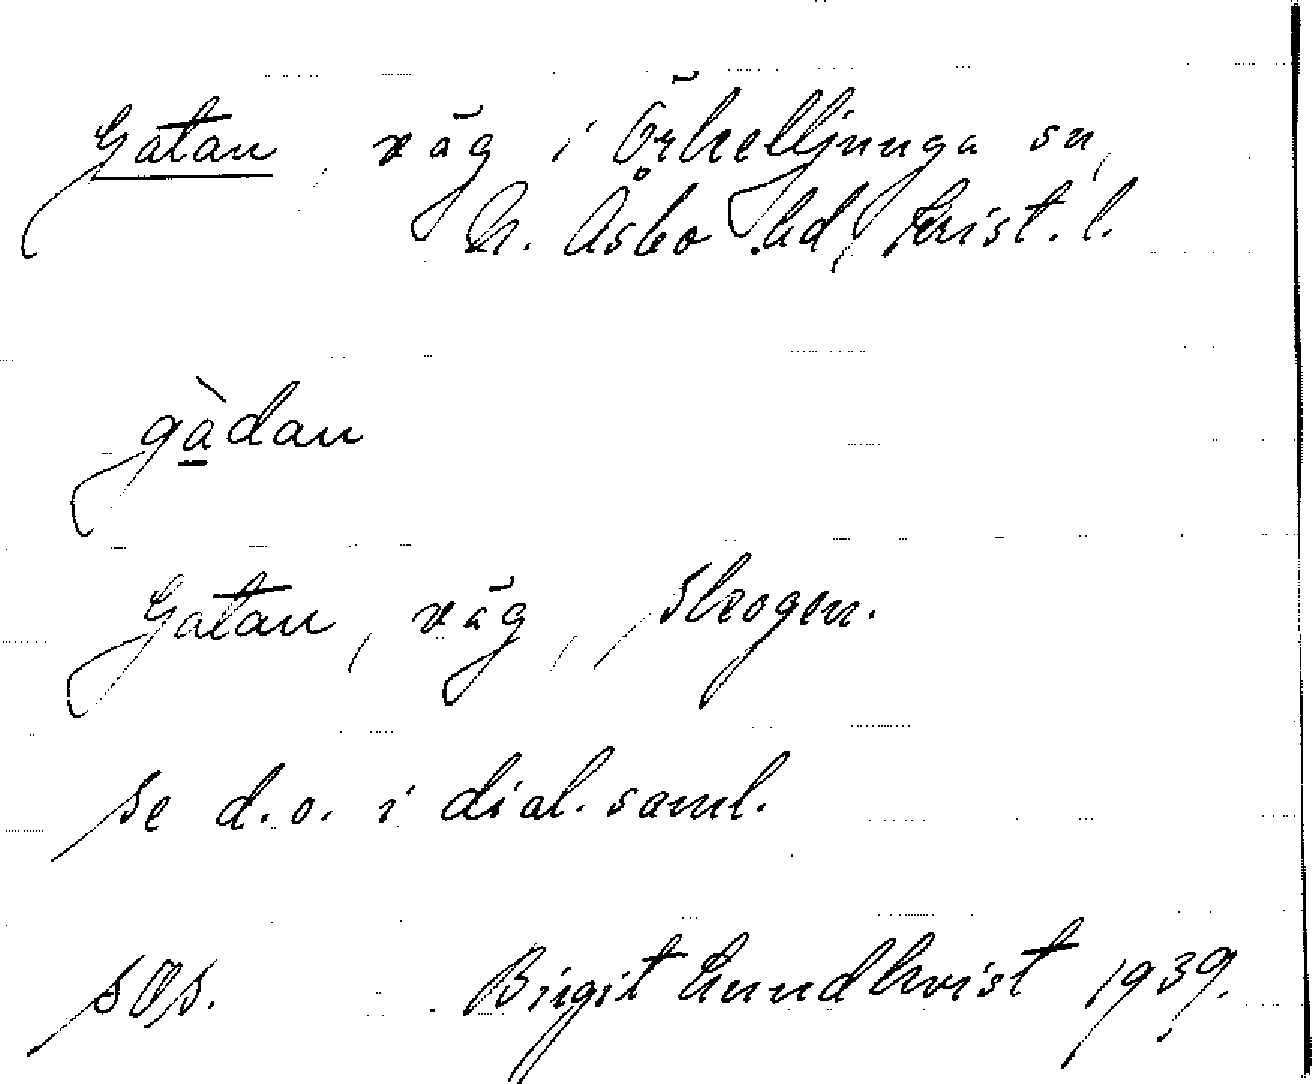 Gatan, väg i Örkelljunga sn,
N. Åsbo hd, Krist. l.
gàdan
Gatan, väg, Skogen.
se d.o. i dial. saml.
Birgit Lundkvist 1939.